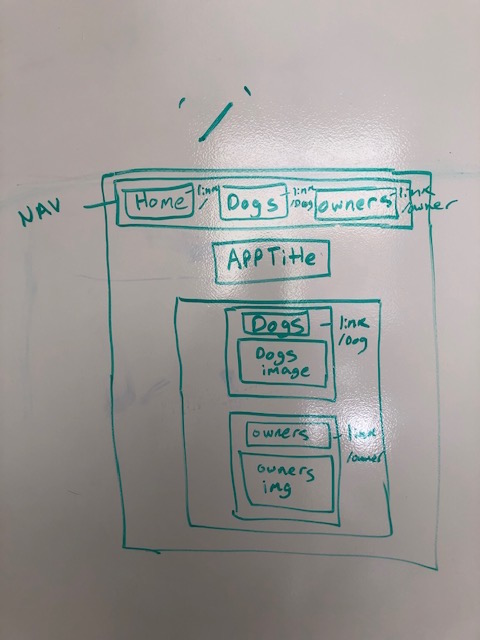 ' / '
NAV
Home link /
Dogs link /Dog
owners link /owner
APP Title
Dogs link /Dog
Dogs image
owners link /owner
owners img